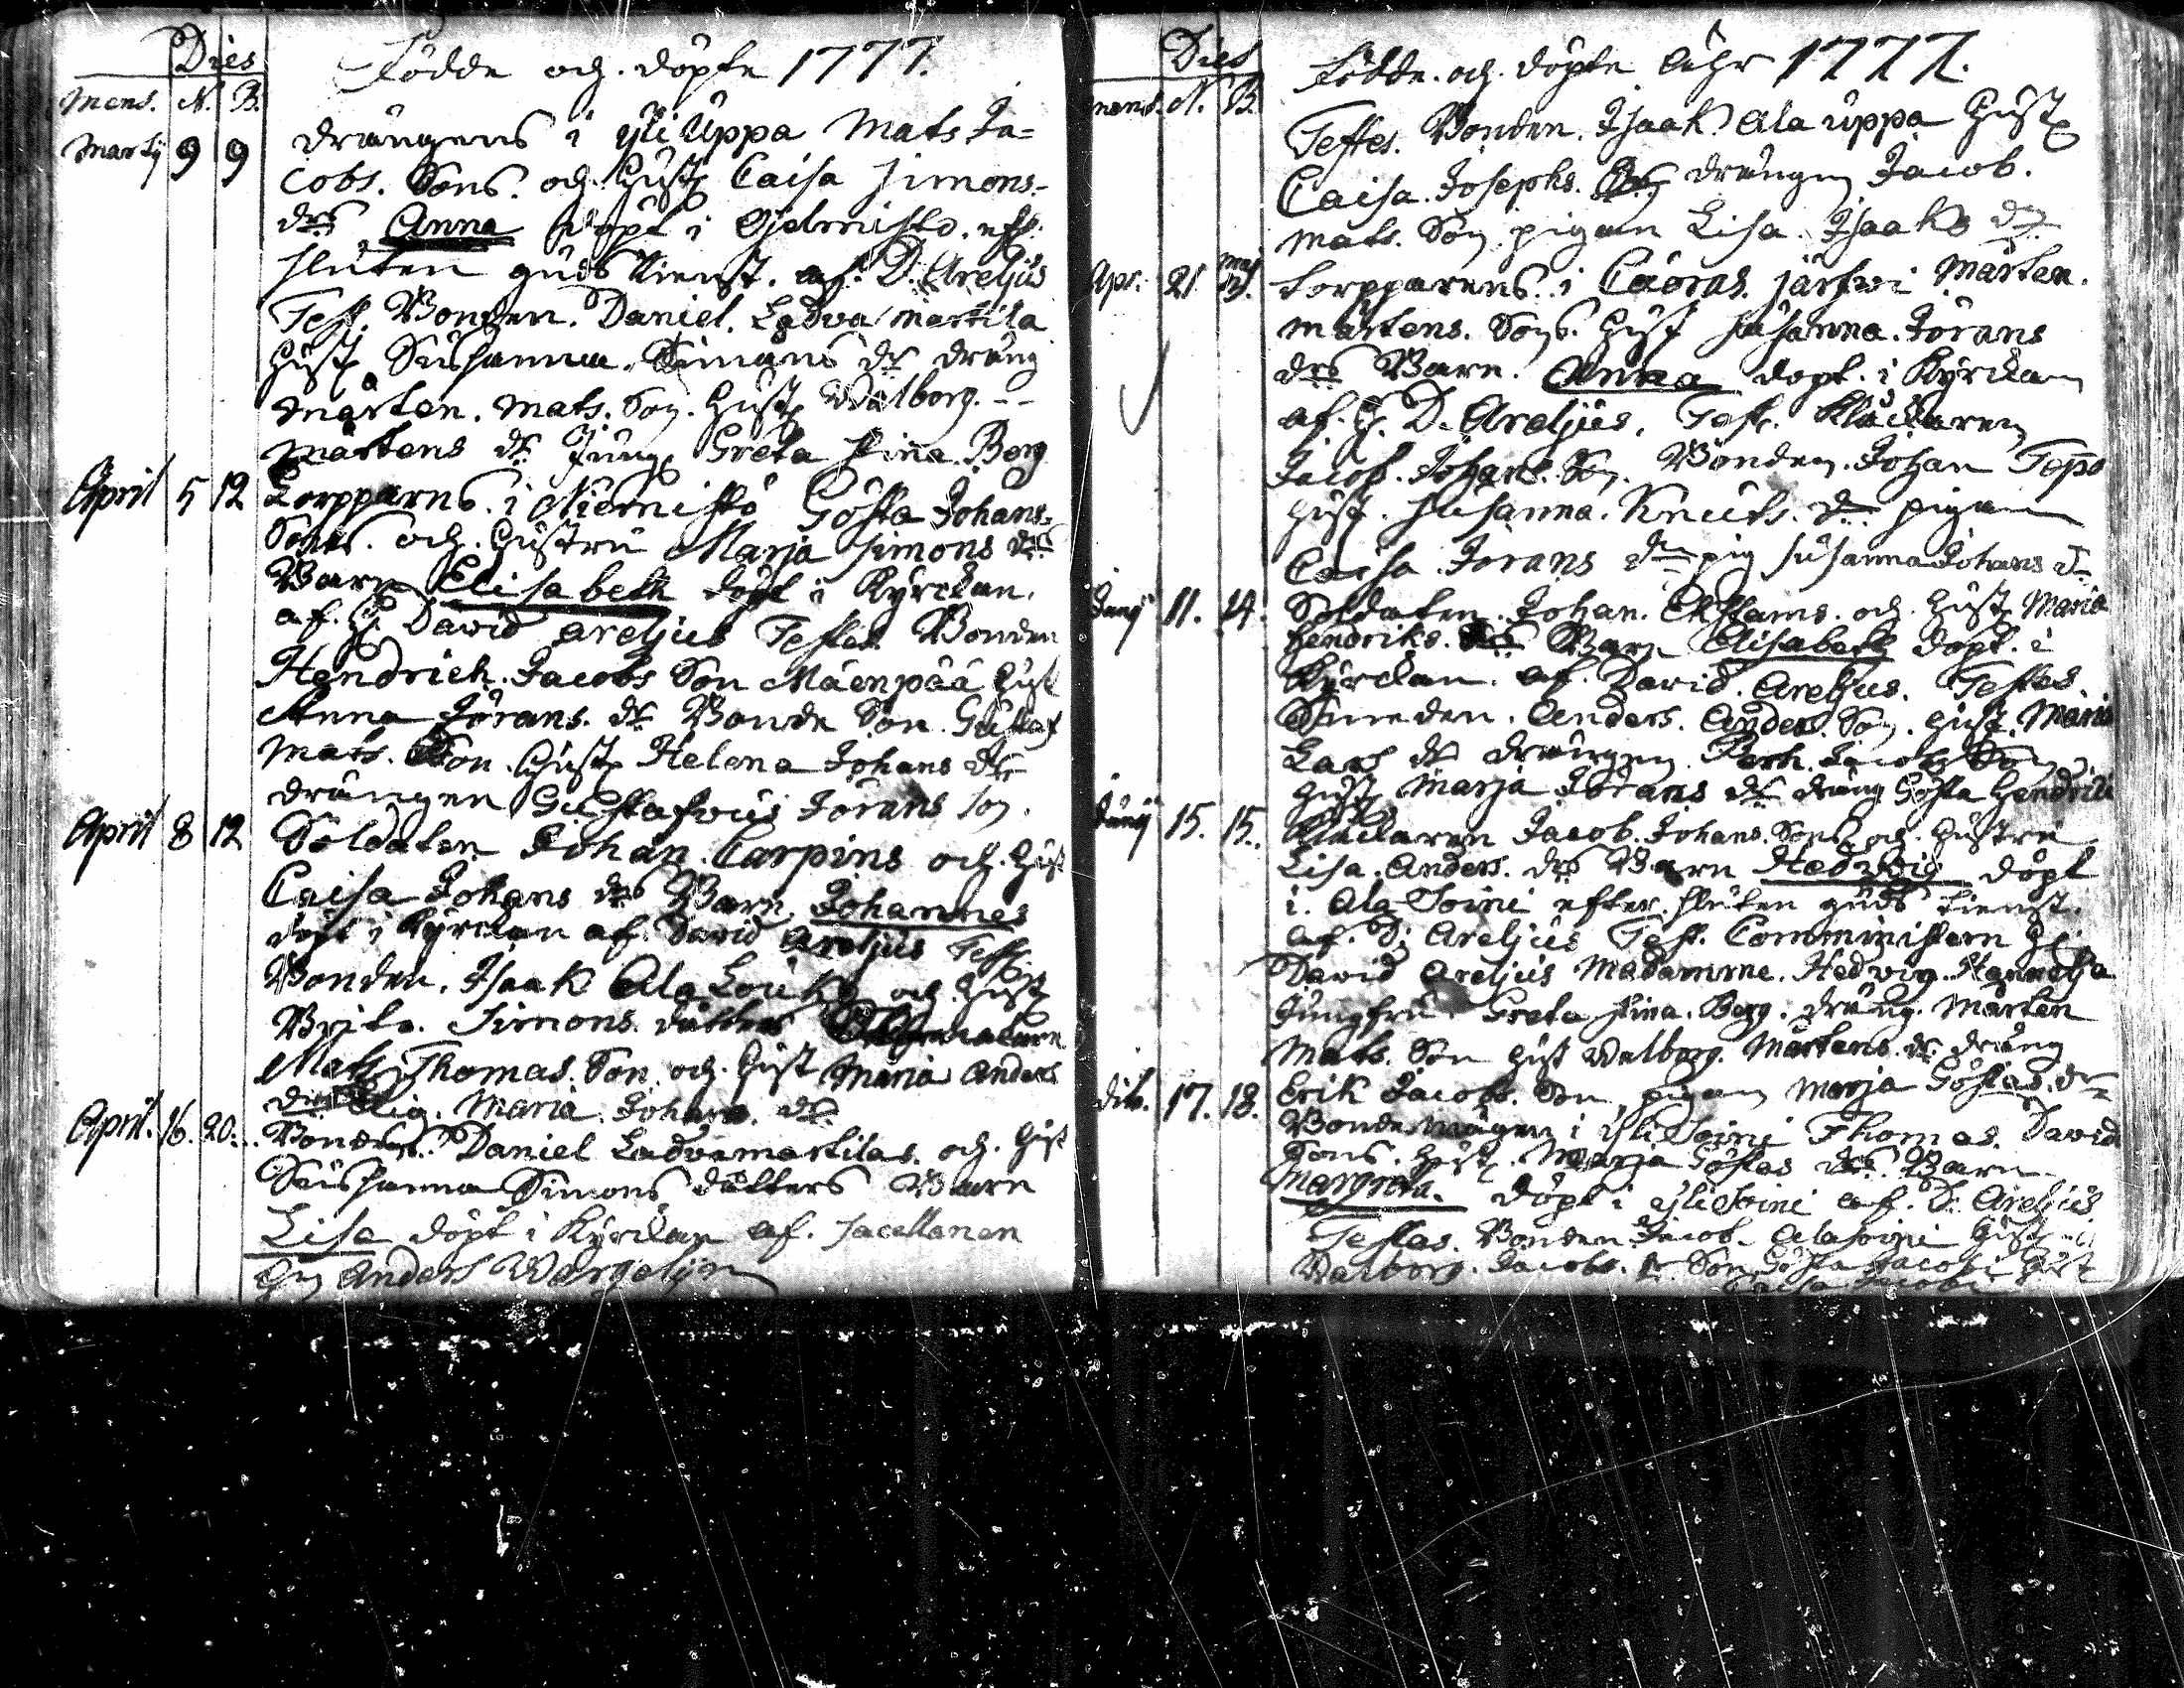 Dies
Mens. N. B.
Födde och döpte 1777.
Martij 9 9 drängens i yliUppa Mats Ja=
cobs. Sons. och Hust. Caisa Simons-
drs Anna döpt i efter
sluten gudstienst. af. D. Areljus
Test. Bonden. Daniel. Ladvamartila
Hust. Sushanna. Simons dr dräng
Mårten. Mats. Son. Hust. Walborg. --
Mårtens dr Jung. Greta Stina Berg
April 5 12 Torpparns. i Niemistö Gösta Johans-
Sons. och. Hustru Marja Simons drs
Barn Elisabeth döpt i Kyrckan.
af. H. David Areljus Testes Bonden
Hendrich. Jacobs Son Mäenpää Hust
Anna Jörans. dr Bonde Son. Gustaf
Mats. Son. Hust. Helena Johans dr
drängen Gustafvus Jörans Son.
April 8 12 Soldaten Johan. Carpins och. Hust
Caisa Johans drs Barn Johannes
döpt i Kyrckan af. David Areljus Test.
Bonden. Isaak AlaLouko och. Hust
Brita. Simons. dotter
Mats Thomas. Son. och. Hust Maria Anders
dr Pig. Maria. Johans. dr.
April. 16. 20. Bondens. Daniel Ladvamartilas. och. Hust
Sushanna Simons dotters Barn
Lisa döpt i Kyrckan af. Sacellanen
Anders Wargeljn
Dies
mens. N. B.
Födde. och. döpte Åhr 1777.
Testes. Bonden. Isaak Ala uppa Hust
Caisa. Josephs. drängen Jacob.
Mats. Son. pigan Lisa. Isaaks dr
Apr. 21. Maj Torpparens. i Caoras. järfvi Mårten.
Mårtens. Sons. Hust Susanna. Jörans
drs Barn. Anna döpt. i Kyrckan
af. H. D. Areljus. Test. Kläckaren
Jacob. Johans. Son. Bonden. Johan Tepo
Hust. Susanna. Knuts. dr pigan
Caisa Jörans dr pig Susanna Johans dr
Junij 11. 14. Soldaten. Johan. och. Hust Maria
Hendriks. drs Barn Elisabeth döpt. i
Kyrckan. af. David. Areljus. Testes.
Smeden. Anders. Anders. Son. Hust. Maria
Lars dr drängen Jacobs Son
Hust Marja Jörans dr dräng Gösta Hendrik
Junij 15. 15. Kläckaren Jacob. Johans. Sons och. Hustru
Lisa. Anders. drs Barn Hedvig döpt
i. Ala Soini efter. sluten guds tienst.
af. D: Areljus Test. Comministern H:
David Areljus Madamme. Hedvig.
Jungfru. Greta Stina. Berg. dräng. Mårten
Mats. Son Hust Walborg. Mårtens. dr dräng
Erik Jacobs. Son pigan Marja Göstas. dr
dito. 17. 18. Bondemågen i yliSoini Thomas. Davids
Sons. Hust. Marja Göstas drs. Barn
Margreta. döpt i yliSoini af. D. Areljus
Testes. Bonden Jacob. Alasoini Hust
Walborg. Jacobs. dr Son Gösta Jacobs Hust
Caisa Jacobs